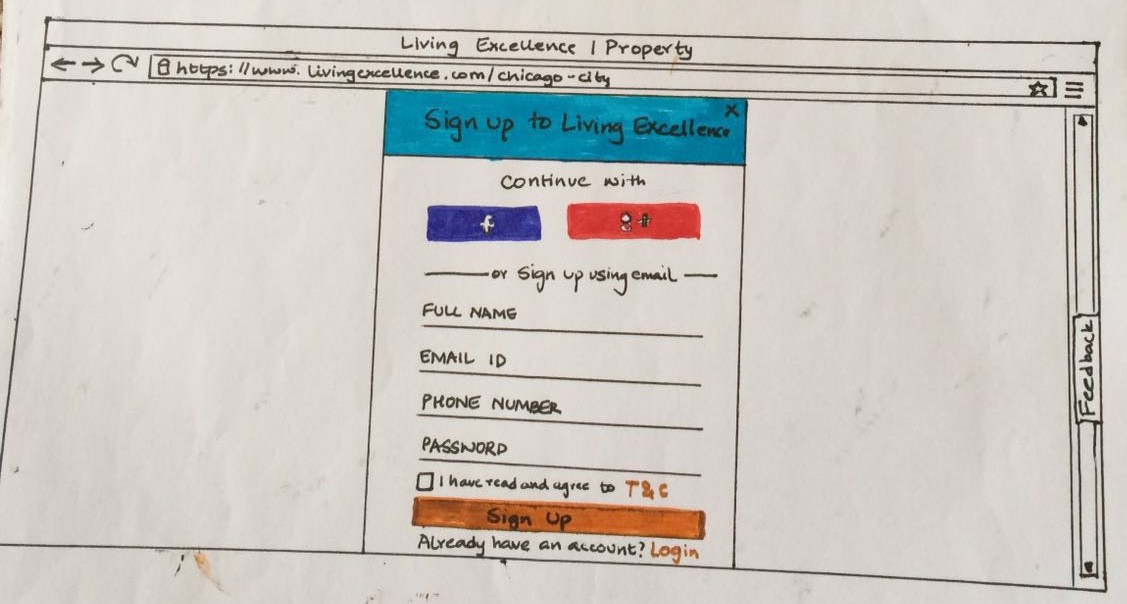 Living Excellence | Property
https://www.livingexcellence.com/chicago-city
Sign up to Living Excellence
x
Continue with
f
g+
or Sign up using email
FULL NAME
EMAIL ID
PHONE NUMBER
PASSWORD
I have read and agree to T&C
Sign Up
Already have an account? Login
Feedback